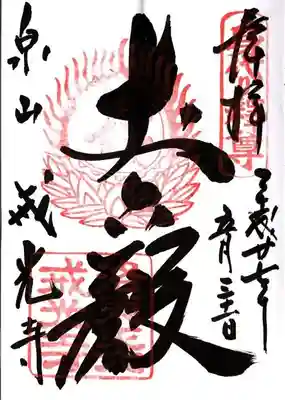 奉拝
平成廿七年
五月
丈六殿
泉山 戒光寺